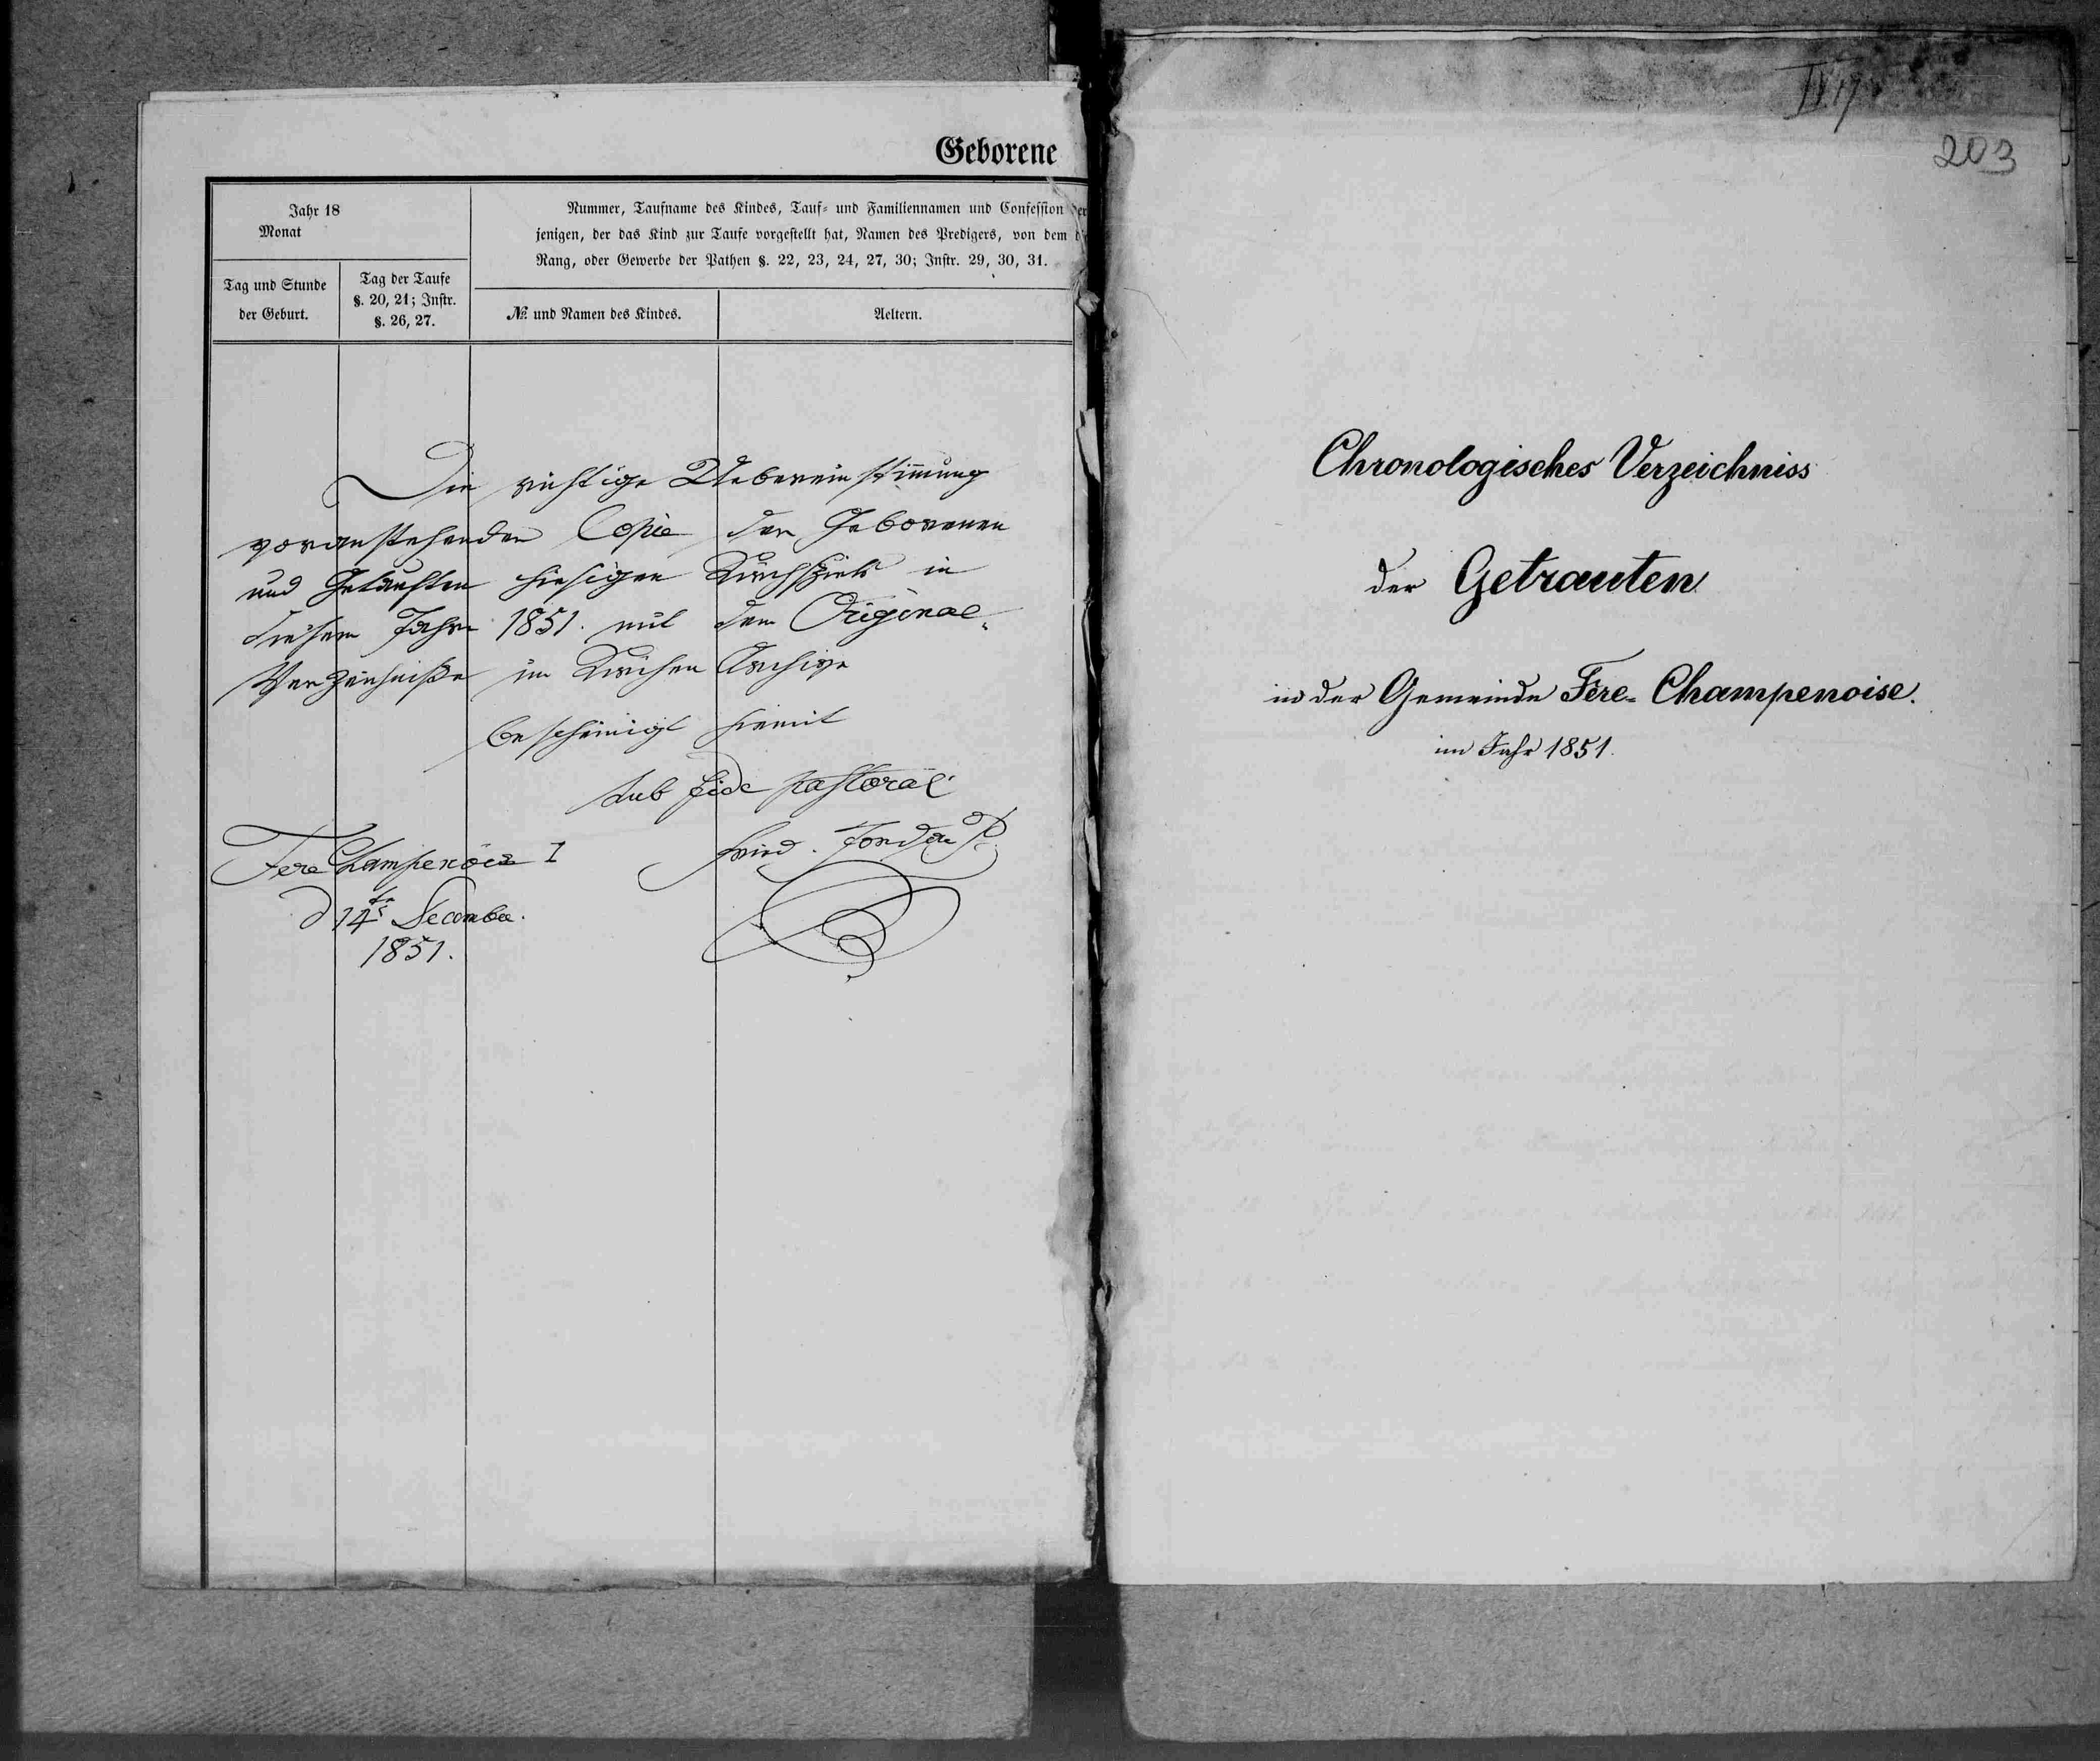 Geborene
Jahr 18
Monat
Nummer, Taufname des Kindes, Tauf- und Familiennamen und Confession der
jenigen, der das Kind zur Taufe vorgestellt hat, Namen des Predigers, von dem
Rang, oder Gewerbe der Pathen §. 22, 23, 24, 27, 30; Instr. 29, 30, 31.
Tag und Stunde
der Geburt.
Tag der Taufe
§. 20, 21; Instr.
§. 26, 27.
№ und Namen des Kindes.
Aeltern.
Die richtige Uebereinstimmung
voranstehender Copie der Geborenen
und Getauften hiesigen Kirchspiels in
diesem Jahre 1851. mit dem Original-
Verzeichniße im Kirchen Archive
bescheinigt hiemit
sub fide pastorali
Fere Champenois I
d 14t December.
1851.
IV 17
203
Chronologisches Verzeichniss
der Getrauten
in der Gemeinde Fère-Champenoise.
im Jahr 1851.